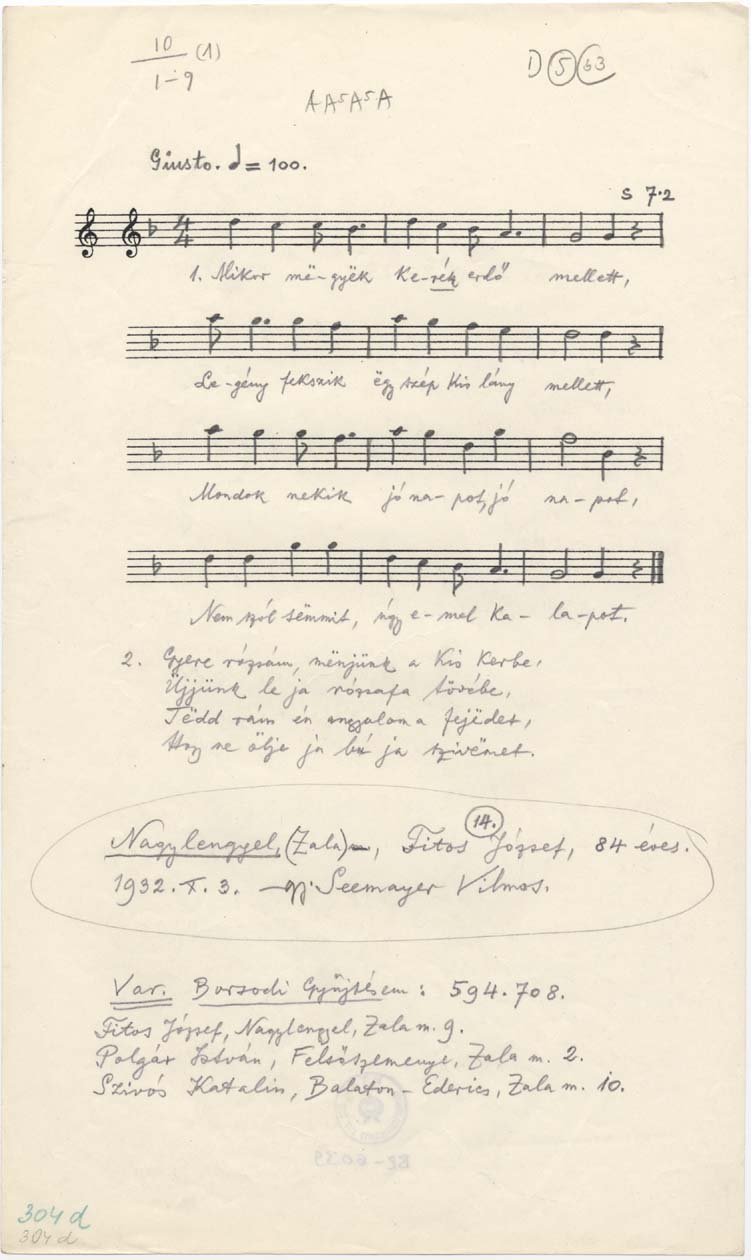 10 (1)
1-9
D 5 63
A A⁵ A⁵ A
Giusto. ♩ = 100.
S 7·2
4
4
1. Mikor më-gyëk ke-rék erdő mellett,
Le-gény fekszik ëgy szép kis lány mellett,
Mondok nekik jó na-pot, jó na-pot,
Nem szól sëmmit, úgy e-mel ka-la-pot.
2. Gyere rózsám, mënjünk a kis kerbe,
Üjjünk le ja rózsafa tövébe,
Tëdd rám én angyalom a fejédet,
Hogy ne ölje ja bú ja szivëmet.
14.
Nagylengyel, (Zala), Fitos József, 84 éves.
1932. X. 3. gy. Seemayer Vilmos.
Var. Borsodi Gyűjtésem: 594. 708.
Fitos József, Nagylengyel, Zala m. 9.
Polgár István, Felsőszemenye, Zala m. 2.
Szivós Katalin, Balaton-Ederics, Zala m. 10.
304 d
304 d